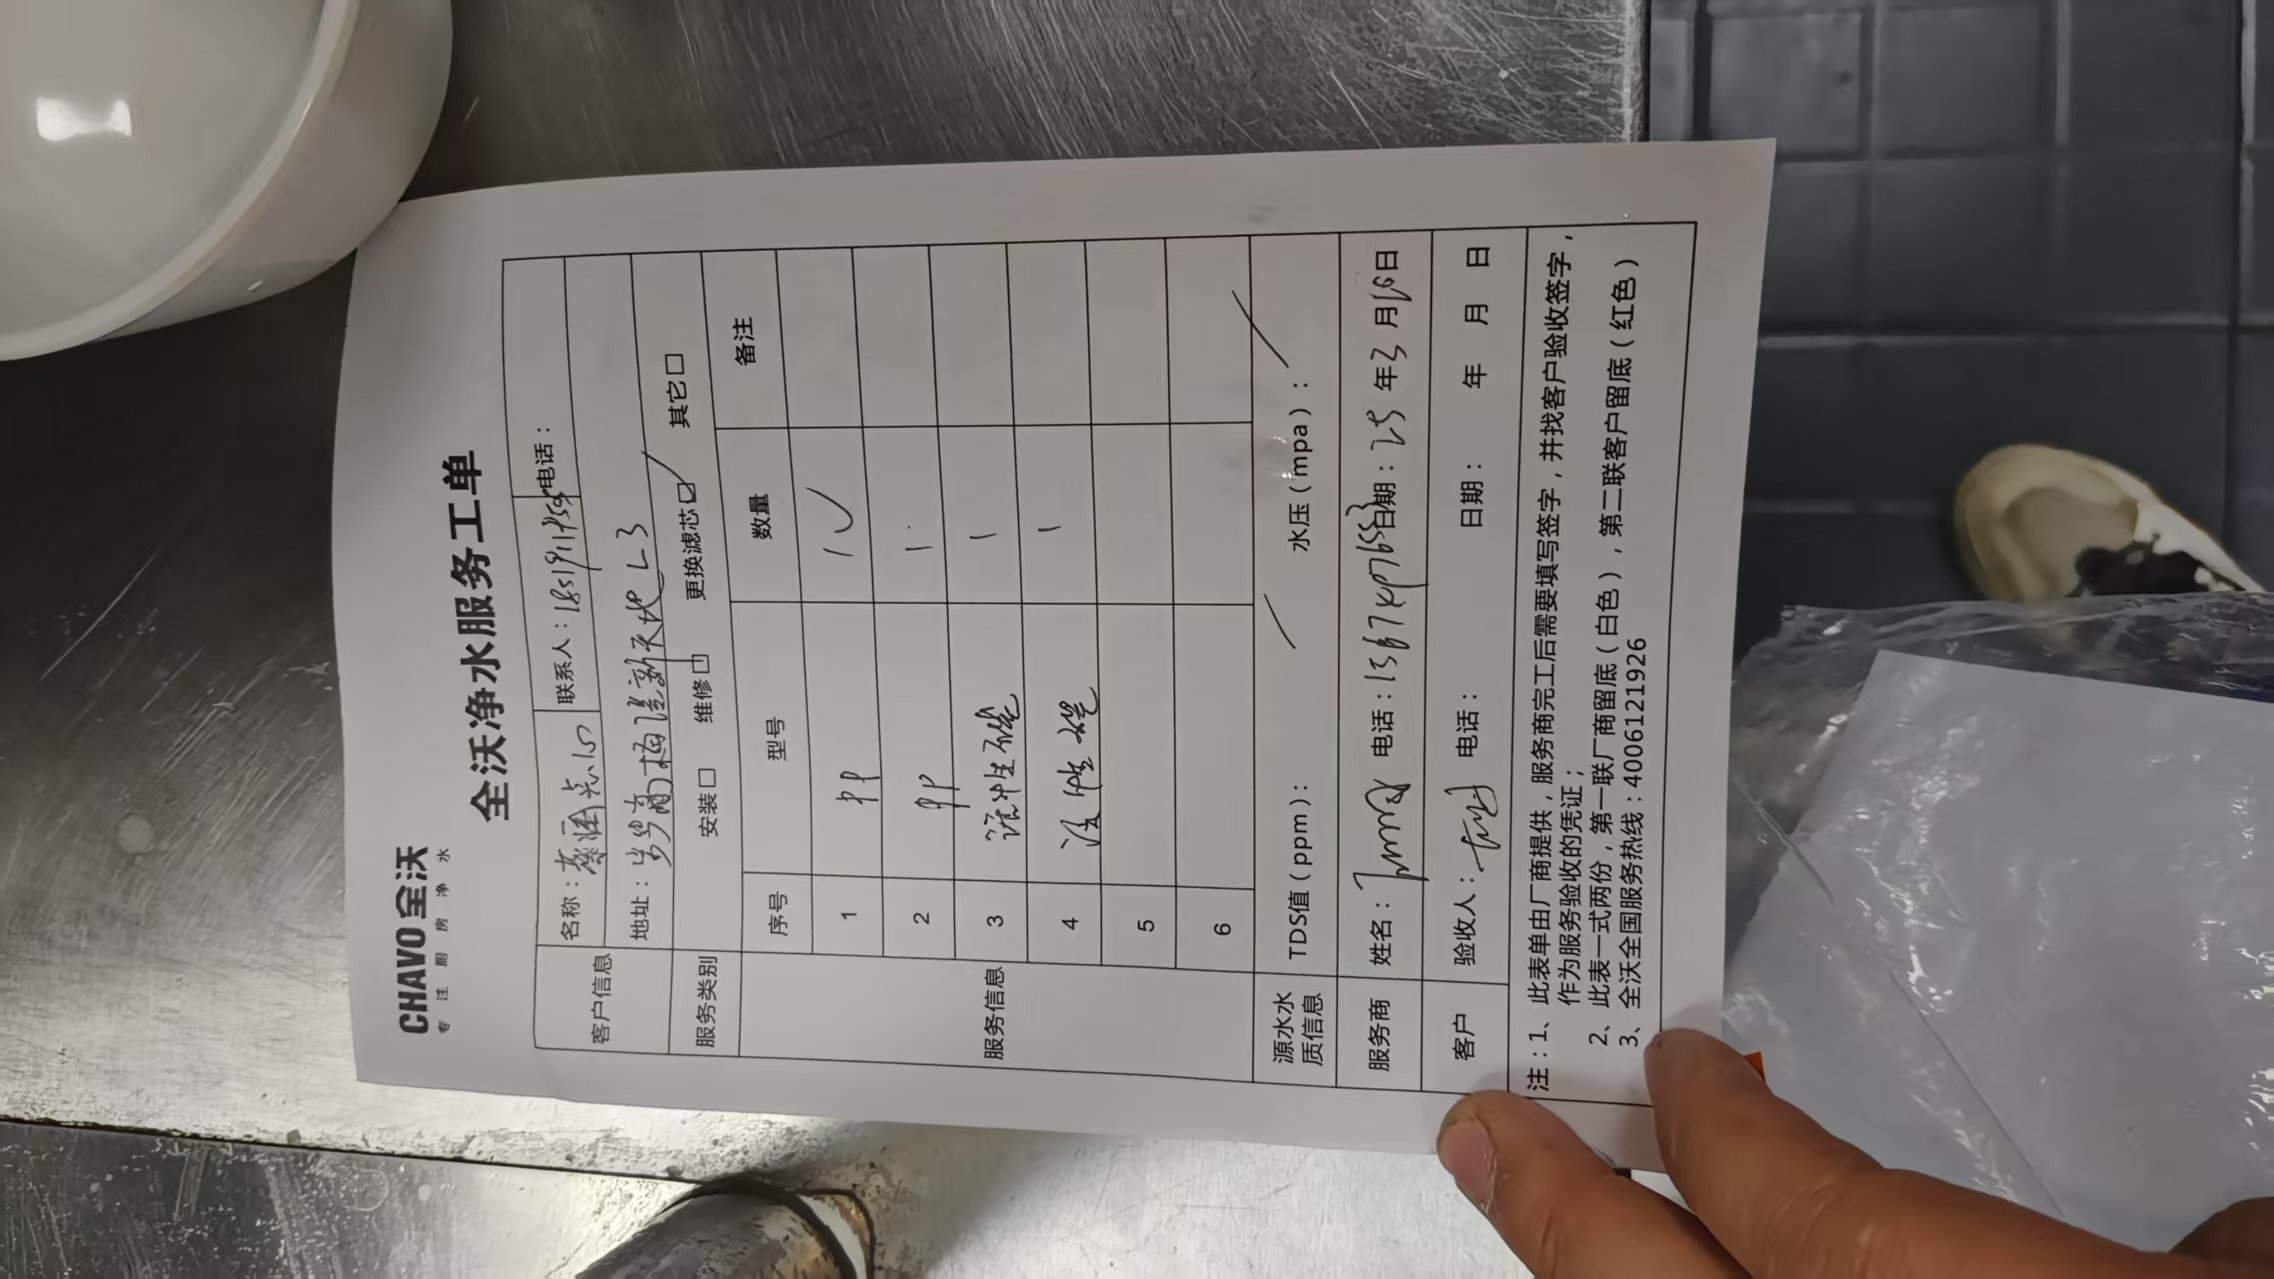 CHAVO 全沃
专注厨房净水
全沃净水服务工单
客户信息 名称： 联系人： 电话：
地址： 新天地 L3
服务类别 安装□ 维修□ 更换滤芯☑ 其它□
服务信息 序号 型号 数量 备注
1 PP 1
2 PP 1
3 活性 1
4 活性 1
5
6
源水水质信息 TDS值（ppm）： 水压（mpa）：
服务商 姓名： 电话： 日期：25年3月16日
客户 验收人： 电话： 日期： 年 月 日
注：1、此表单由厂商提供，服务商完工后需要填写签字，并找客户验收签字，
作为服务验收的凭证；
2、此表一式两份，第一联厂商留底（白色），第二联客户留底（红色）
3、全沃全国服务热线：4006121926